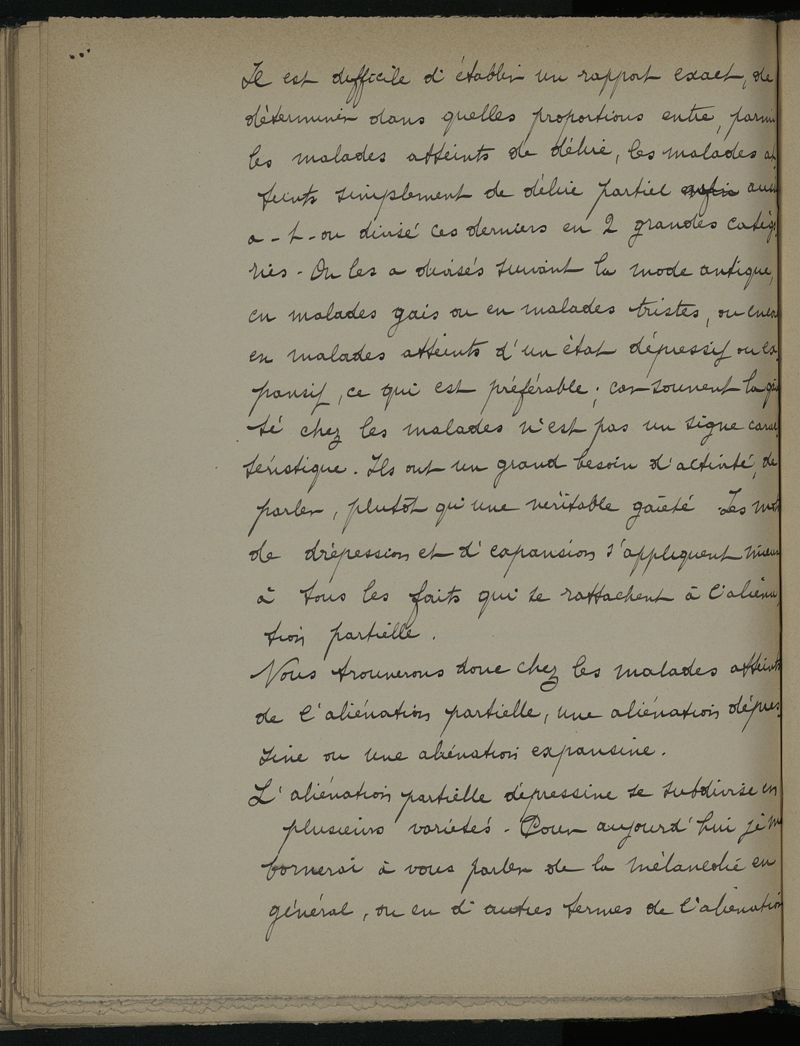 Il est difficile d'établir un rapport exact, de
déterminer dans quelles proportions entre, parmi
les malades atteints de délire, les malades at
teints simplement de délire partiel aussi
a-t-on divisé ces derniers en 2 grandes catégo
ries - On les a divisés suivant la mode antique,
en malades gais ou en malades tristes, ou encore
en malades atteints d'un état dépressif ou ex
pansif, ce qui est préférable; car souvent la gaie
té chez les malades n'est pas un signe carac
téristique. Ils ont un grand besoin d'activité, de
parler, plutôt qu'une véritable gaieté. Les mots
de drépression et d'expansion s'appliquent mieux
à tous les faits qui se rattachent à l'aliéna
tion partielle.
Nous trouverons donc chez les malades atteints
de l'aliénation partielle, une aliénation dépres
sive ou une aliénation expansive.
L'aliénation partielle dépressive se subdivise en
plusieurs variétés - Pour aujourd'hui je me
bornerai à vous parler de la mélancolie en
général, ou en d'autres termes de l'aliénation